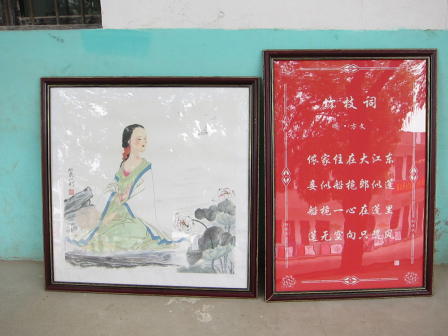 竹枝词
明·方文
侬家住在大江东
妾似船桅郎似篷
船桅一心在篷里
篷无定向只随风